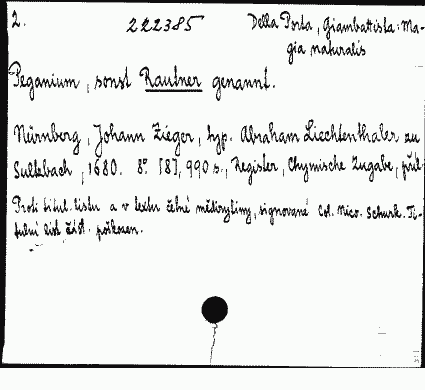 2. 222385 Della Porta, Giambattista: Ma-
gia naturalis
Peganium, sonst Rautner genannt.
Nürnberg, Johann Zieger, typ. Abraham Liechtenthaler zu
Sultzbach, 1680. 8°. [8], 990 s., Register, Chymische Zugabe, příl.
Proti titul. listu a v textu četné mědirytiny, signované Col. Nico. Schurk. Ti-
tulní list část. poškozen.